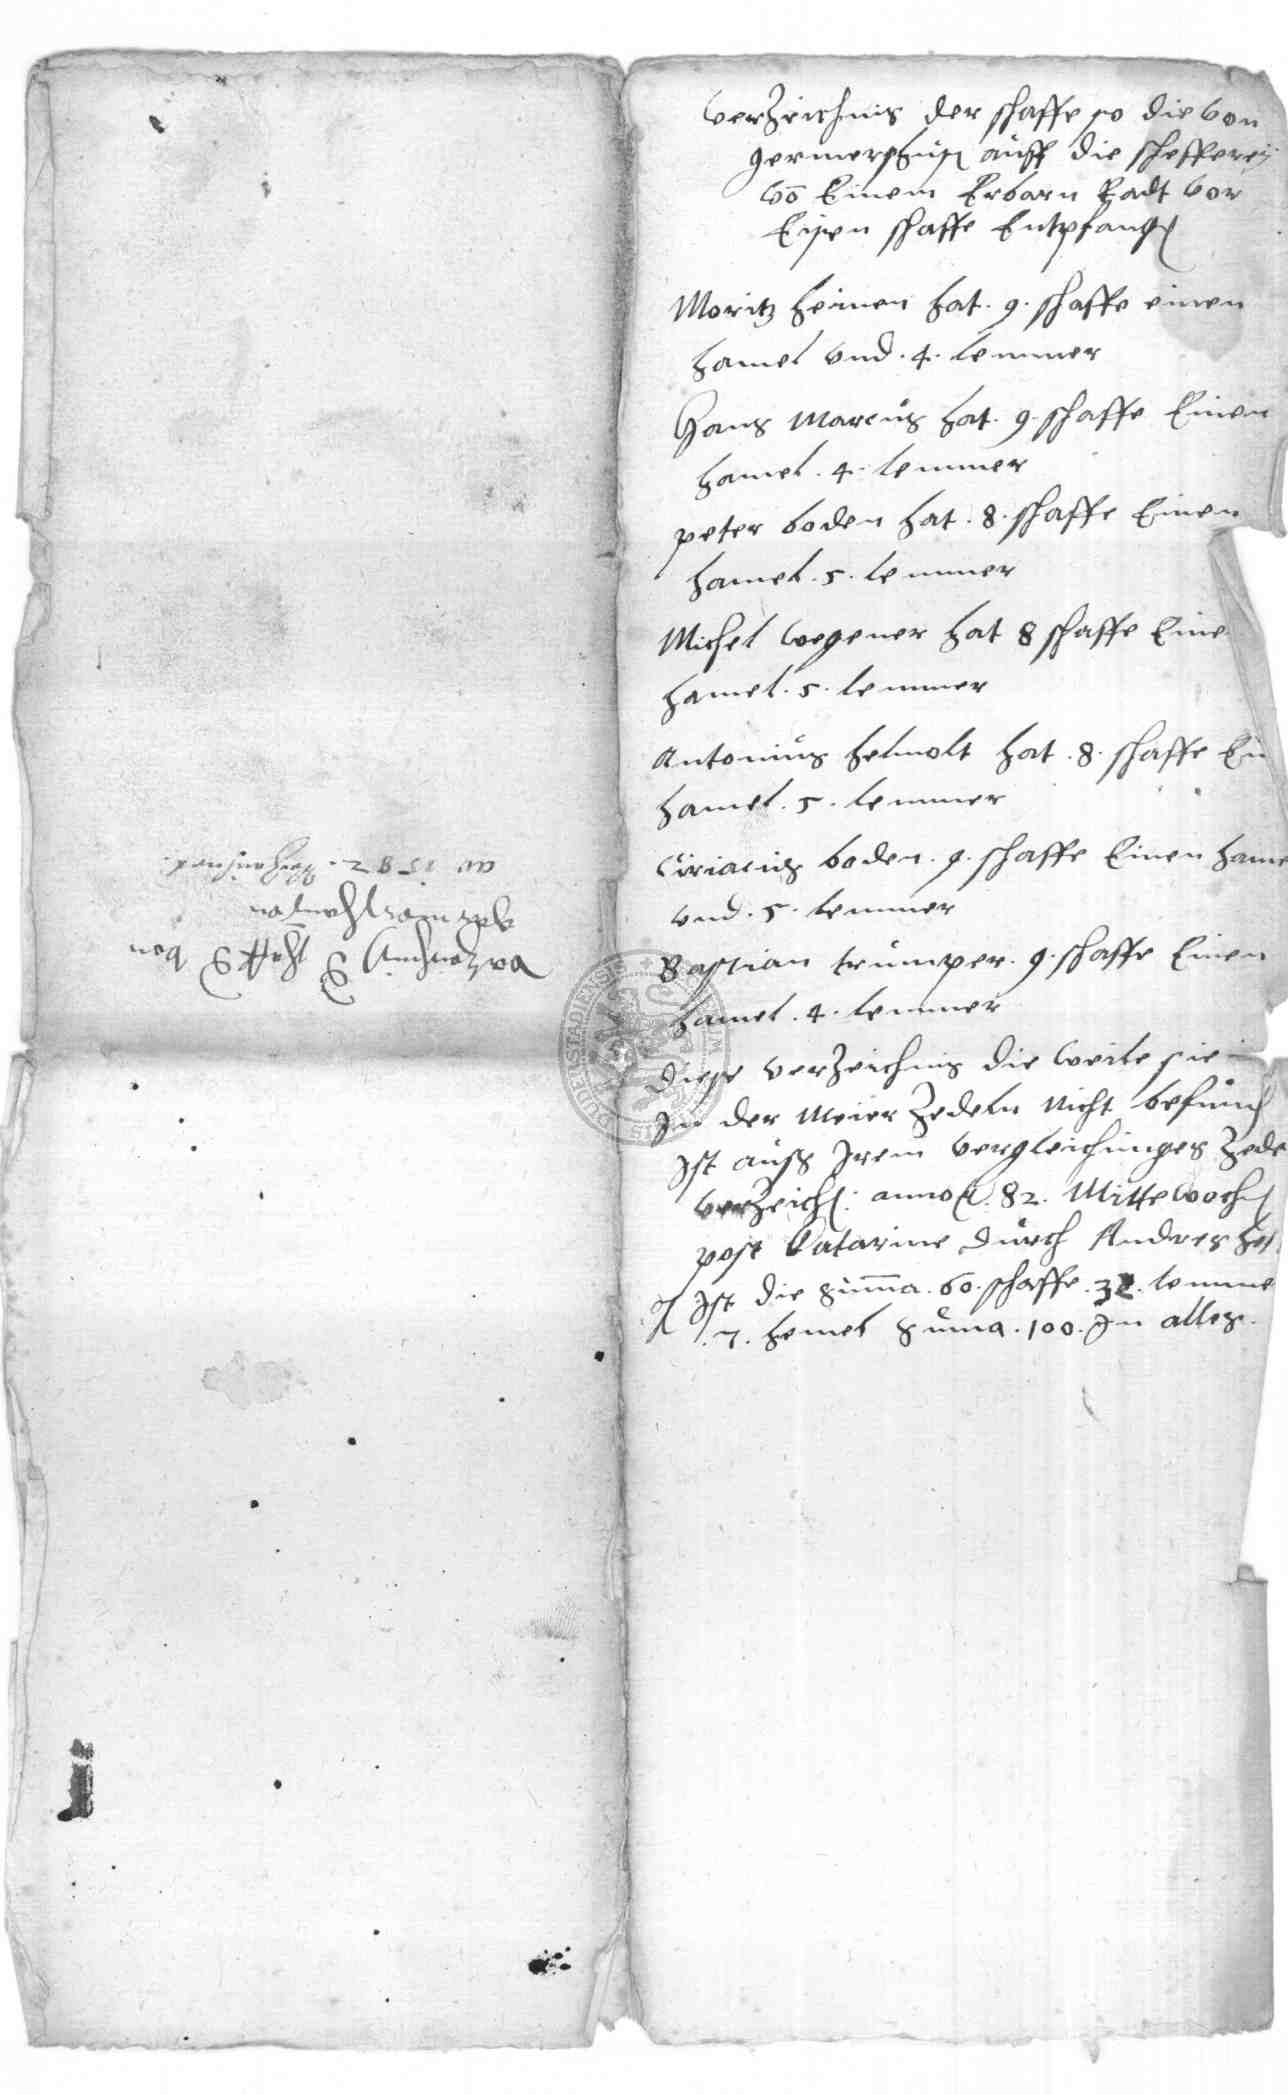 verZeichnis der schaffe so die von
germershusen auff die schefferey
vo Einem Erbarn Radt vor
Eisen schaffe Entpfangen
Moritz heinen hat . 9 . schaffe einen
hamel vnd . 4 . lemmer
Hans Marcus hat . 9 . schaffe Einen
hamel . 4 . lemmer
peter boden hat . 8 . schaffe Einen
hamel . 5 . lemmer
Michel wegener hat 8 schaffe Eine
hamel . 5 . lemmer
Antonius helmolt hat . 8 . schaffe Ein
hamel . 5 . lemmer
Ciriacus boden . 9 . schaffe Einen hame
vnd . 5 . lemmer
Bastian trumper . 9 . schaffe Einen
hamel . 4 . lemmer
Diese verZeichnis die weile sie
In der Meier Zedeln Nicht befunden
Ist auss Irem vergleichunges Zede
verZeichen: anno 82 . Mittewochen
post Catarine Durch Andres
Ist die summa . 60 . schaffe . 32 . lemme
. 7 . hemel suma . 100 . In alles .
vorZeichnis schaffe von
germershusen
1582
DUDERSTADIENSE